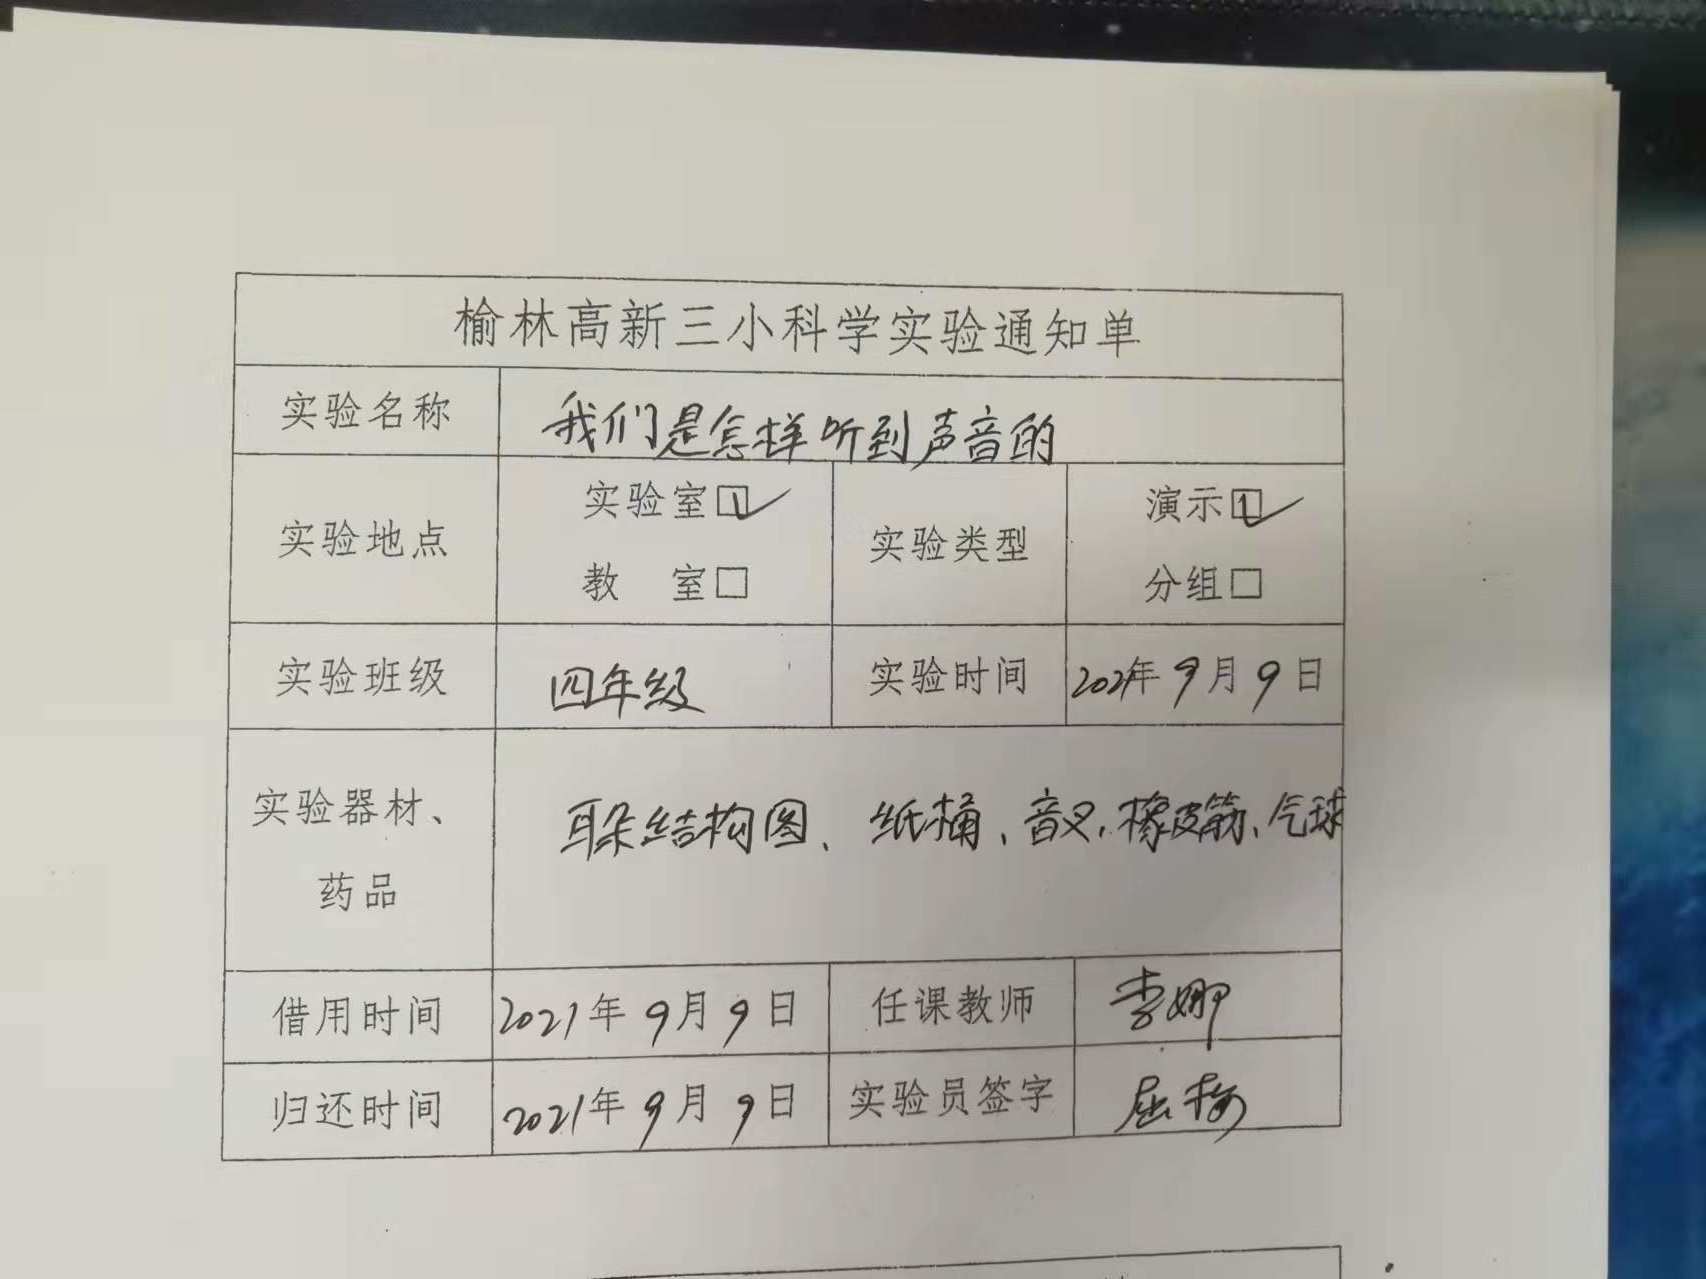 榆林高新三小科学实验通知单
实验名称 我们是怎样听到声音的
实验室☑
演示☑
实验地点 实验类型
教 室□
分组□
实验班级 四年级 实验时间 2021年9月9日
实验器材、
耳朵结构图、纸桶、音叉、橡皮筋、气球
药品
借用时间 2021年9月9日 任课教师 李娜
归还时间 2021年9月9日 实验员签字 屈